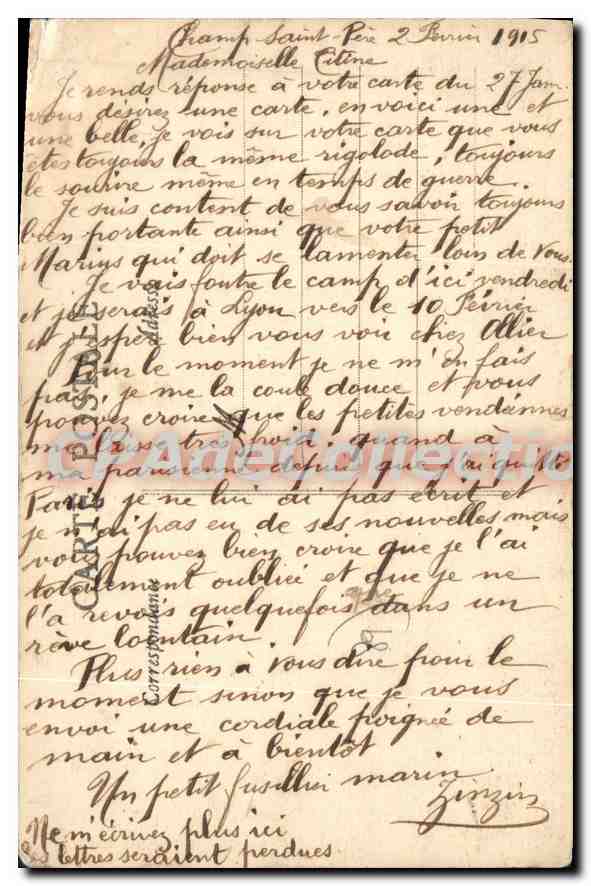 Champ Saint-Père 2 Février 1915
Mademoiselle Titine
Je rends réponse à votre carte du 27 Janv.
vous désirez une carte, en voici une et
une belle, je vois sur votre carte que vous
êtes toujours la même rigolade, toujours
le sourire même en temps de guerre.
Je suis content de vous savoir toujours
bien portante ainsi que votre petit
Marius qui doit se lamenter loin de vous.
Je vais foutre le camp d'ici vendredi
et je serais à Lyon vers le 10 Février
et j'espère bien vous voir chez Ollier
Pour le moment je ne m'en fais
pas, je me la coule douce et vous
pouvez croire que les petites vendéennes
me laisse très froid, quand à
ma parisienne depuis que j'ai quitté
Paris je ne lui ai pas écrit et
je n'ai pas eu de ses nouvelles mais
vous pouvez bien croire que je l'ai
totalement oubliée et que je ne
l'a revois quelquefois dans un
rêve lointain.
Plus rien à vous dire pour le
moment sinon que je vous
envoi une cordiale poignée de
main et à bientôt
Un petit fusillier marin
Zinzin
Ne m'écrivez plus ici
les lettres seraient perdues.
CARTE POSTALE
Correspondance
Adresse